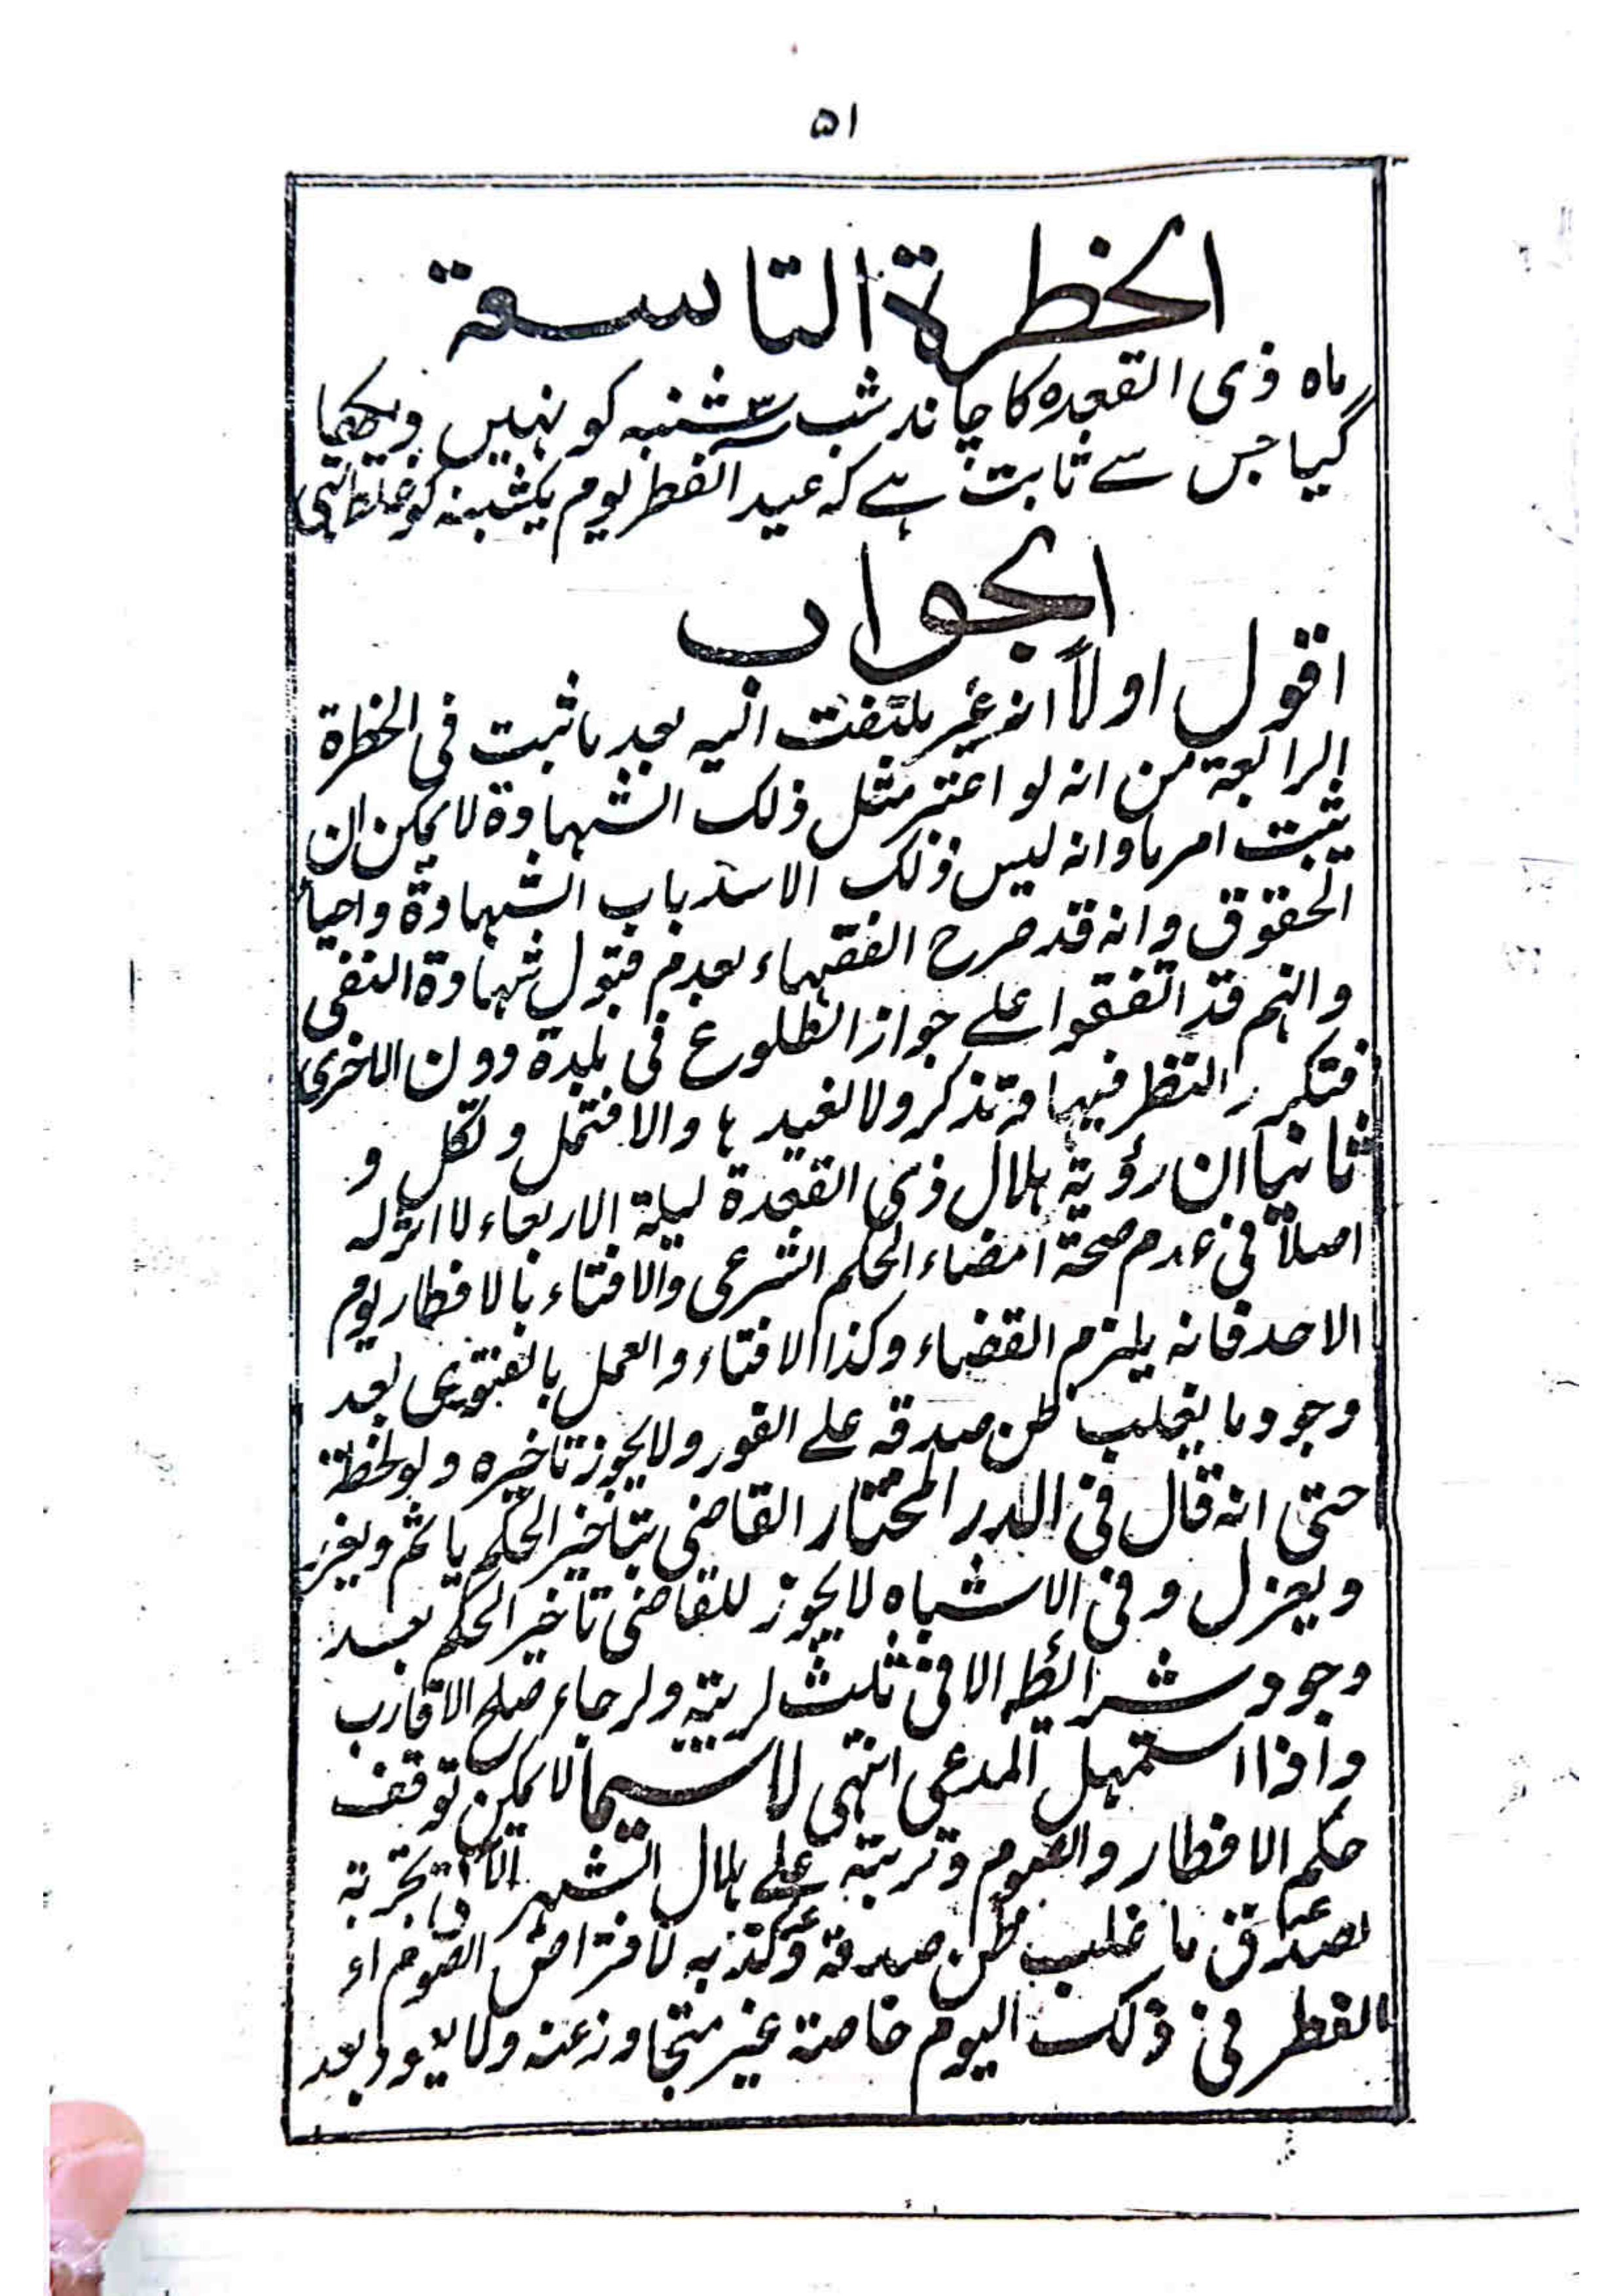 ۵۱
الخطرة التاسعة
ماہ ذی القعدہ کا چاند شب سہ شنبہ کو نہیں دیکھا
گیا جس سے ثابت ہے کہ عید الفطر یوم یکشبنہ کو غلط تہی
الجواب
اقول اولاً انہ غیر ملتفت الیہ بعد ما ثبت فی الخطرة
الرابعة من انہ لو اعتبر مثل ذلک الشہادة لا یمکن ان
یثبت امر ما وانہ لیس ذلک الا سد باب الشہادة واحیاء
الحقوق وانہ قد صرح الفقہاء بعدم قبول شہادة النفی
وانہم قد اتفقوا علے جواز الطلوع فی بلدة دون الاخری
فتکرر النظر فیہا وتذکر ولا نعیدہا والا فتمل وتکل و
ثانیاً ان رؤیة ہلال ذی القعدة لیلة الاربعاء لا اثر لہ
اصلاً فی عدم صحة امضاء الحکم الشرعی والافتاء بالافطار یوم
الاحد فانہ یلزم القضاء وکذا الافتاء والعمل بالفتوی بعد
وجود ما یغلب ظن صدقہ علے الفور ولا یجوز تاخیرہ ولو لحظة
حتی انہ قال فی الدر المختار القاضی بتأخیر الحکم یاثم ویعزر
ویعزل وفی الاشباہ لا یجوز للقاضی تاخیر الحکم بعد
وجود شرائطہ الا فی ثلث لریبة ولرجاء صلح الاقارب
واذا استمہل المدعی انتہی لا سیما لا یمکن توقف
حکم الافطار والصوم وترتبہ علے ہلال الشہر الآتی تجربة
لصدق ما غلب ظن صدقہ وکذبہ لافتراض الصوم او
الفطر فی ذلک الیوم خاصة غیر متجاوز عنہ ولا یعود بعد